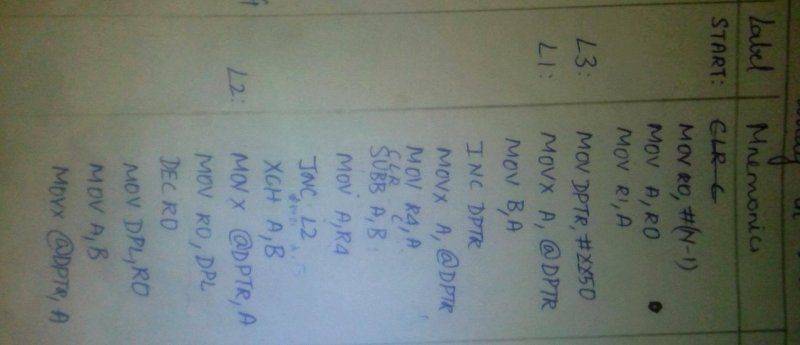 Label Mnemonics
START: CLR C
MOV R0, #(N-1)
MOV A, R0
MOV R1, A
L3: MOV DPTR, #XX50
L1: MOVX A, @DPTR
MOV B, A
INC DPTR
MOVX A, @DPTR
MOV R4, A
CLR C
SUBB A, B
MOV A, R4
JNC L2
XCH A, B
L2: MOVX @DPTR, A
MOV R0, DPL
DEC R0
MOV DPL, R0
MOV A, B
MOVX @DPTR, A